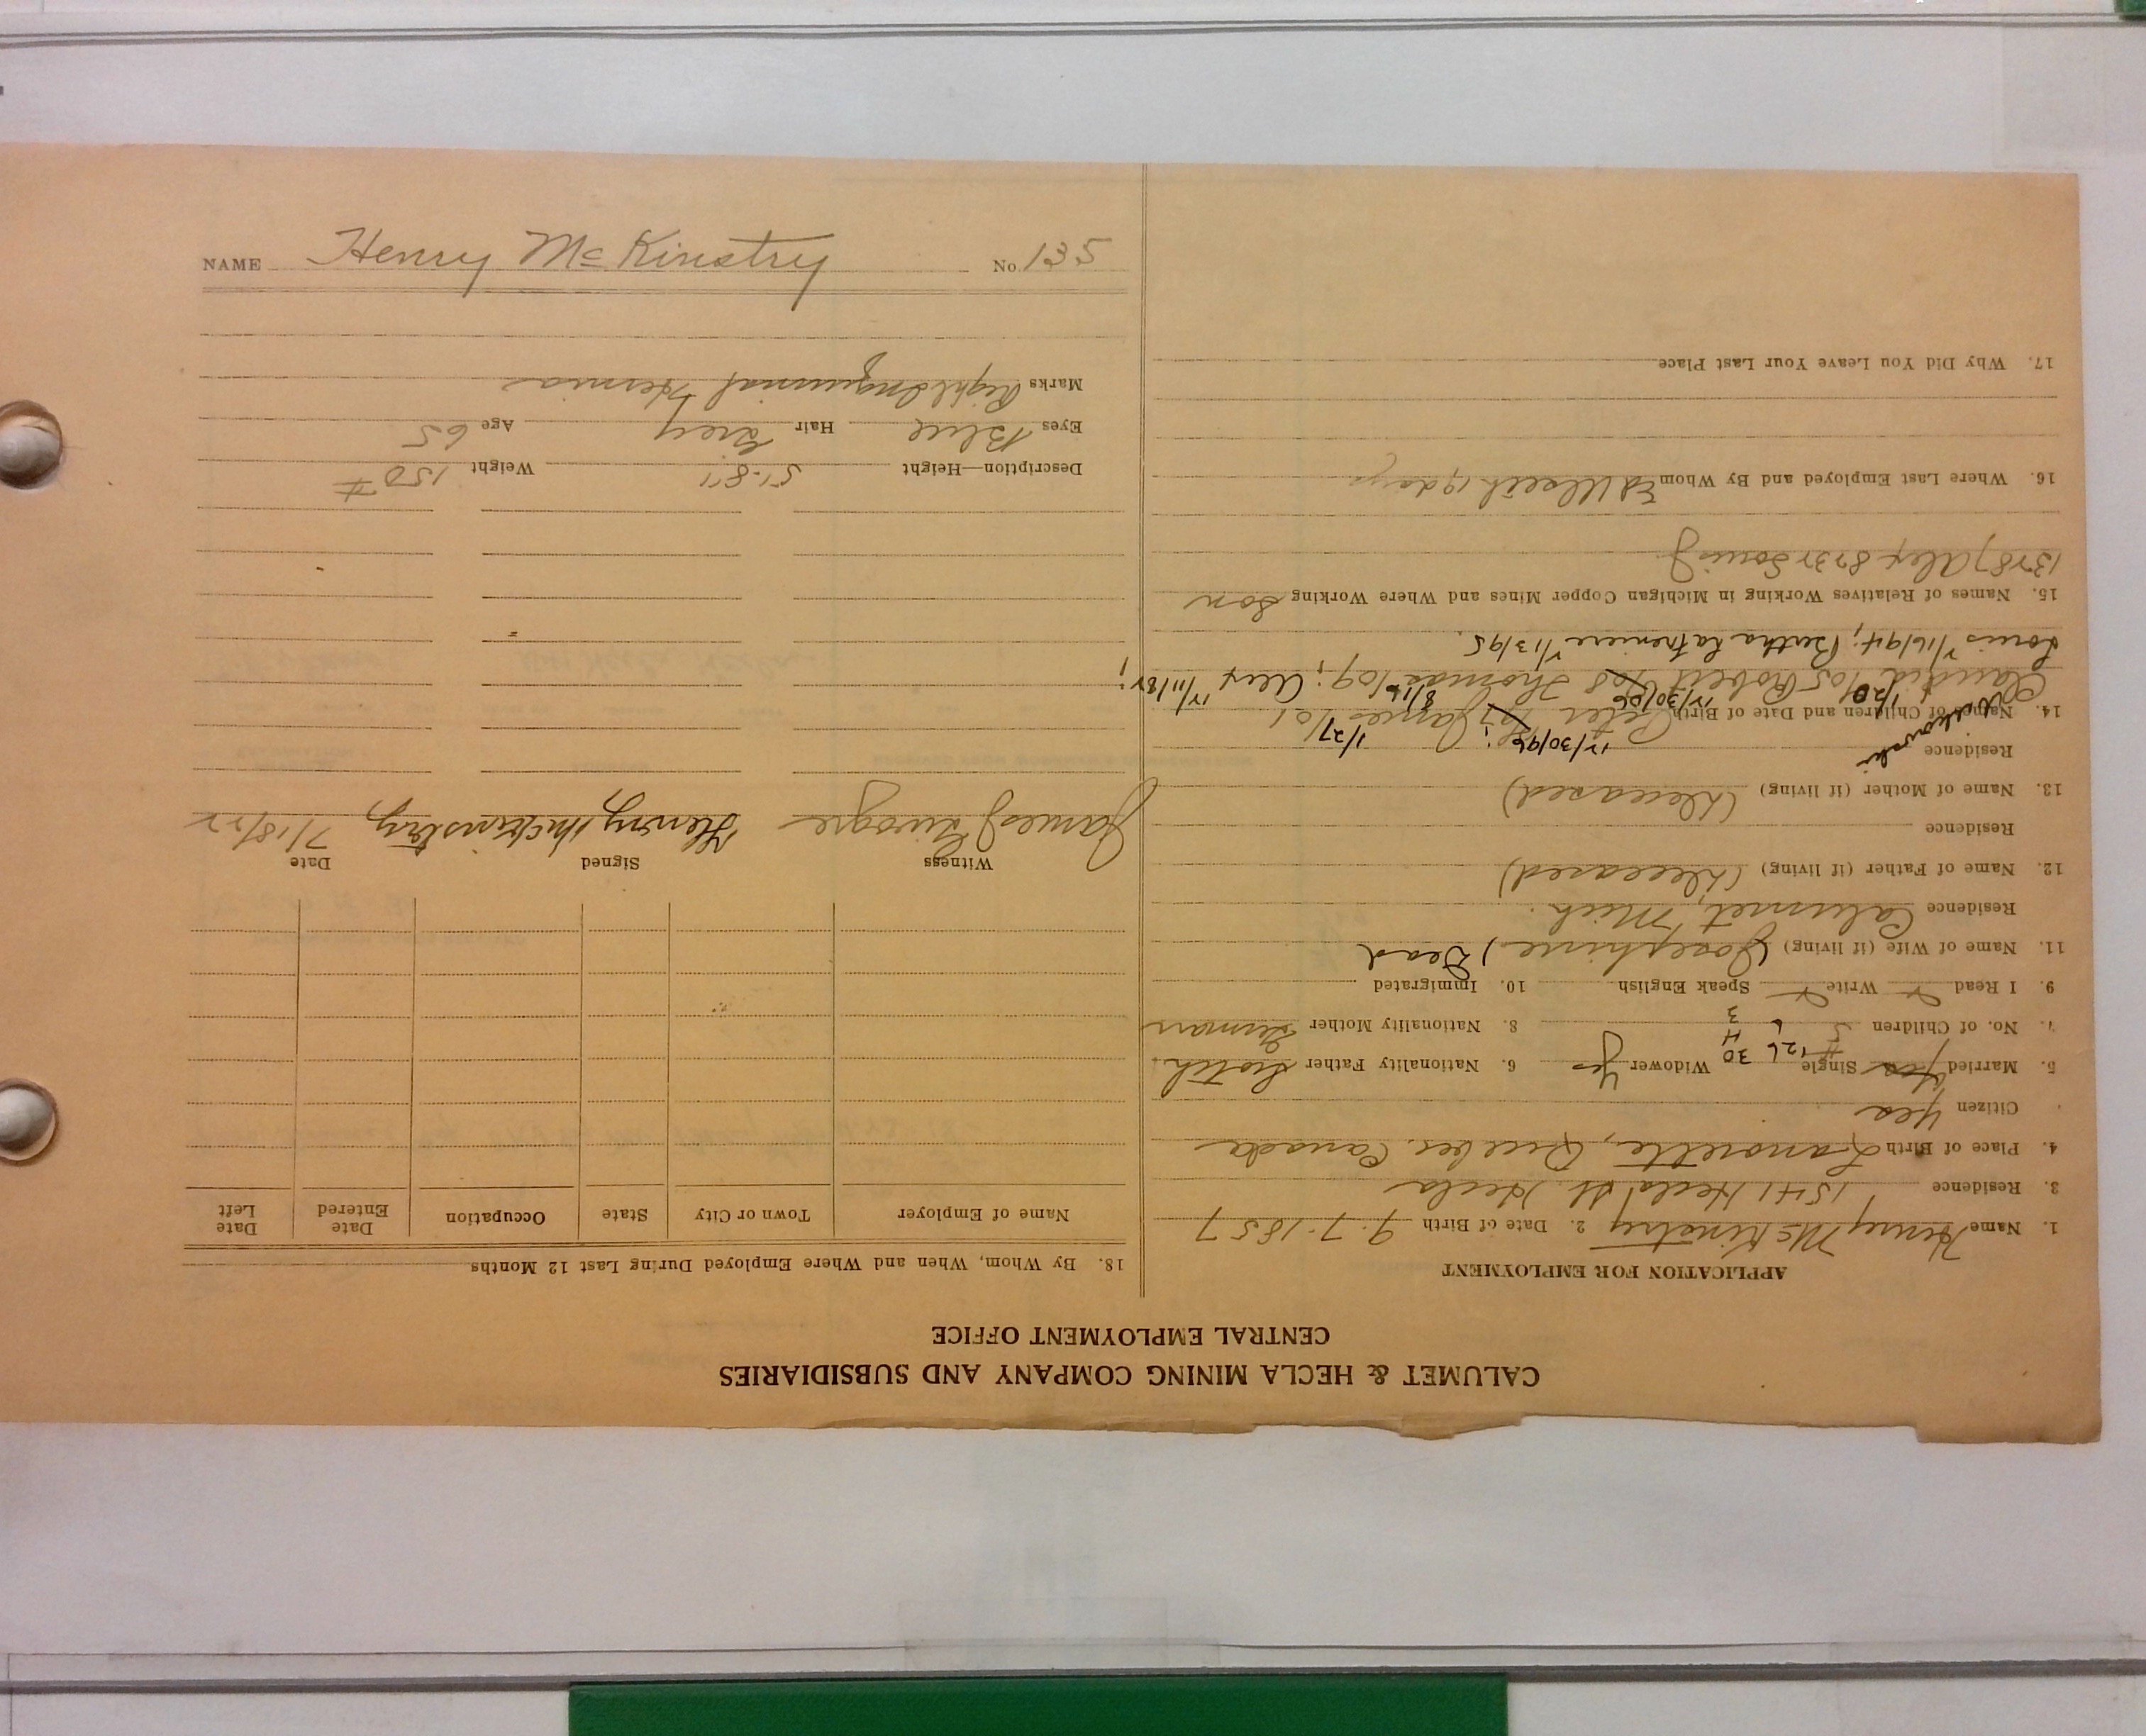 CALUMET & HECLA MINING COMPANY AND SUBSIDIARIES
CENTRAL EMPLOYMENT OFFICE
APPLICATION FOR EMPLOYMENT
1. Name Henry McKinstry 2. Date of Birth 9-7-1857
3. Residence 1541 Hecla St. Hecla
4. Place of Birth Lanorette, Quebec, Canada
Citizen Yes
5. Married Yes Single Widower Yes 6. Nationality Father Scotch
7. No. of Children 5 8. Nationality Mother German
9. I Read Write Speak English 10. Immigrated
11. Name of Wife (if living) (Josephine) Dead
Residence Calumet, Mich.
12. Name of Father (if living) (Deceased)
Residence
13. Name of Mother (if living) (Deceased)
Residence
14. Names of Children and Date of Birth Peter James 1/27/01
Robert Thomas /09; Alex 12/11/87;
Louis 2/16/94; Bertha Lafreniere 2/13/95.
15. Names of Relatives Working in Michigan Copper Mines and Where Working Son
1387 Alex 8732 Louis
16. Where Last Employed and By Whom 19 days
17. Why Did You Leave Your Last Place
18. By Whom, When and Where Employed During Last 12 Months
Name of Employer Town or City State Occupation Date Entered Date Left
Witness Signed Date
James Henry McKinstry 7/18/22
Description—Height 5'-8" Weight 150 #
Eyes Blue Hair Grey Age 65
Marks Right Inguinal Hernia
NAME Henry McKinstry No. 135